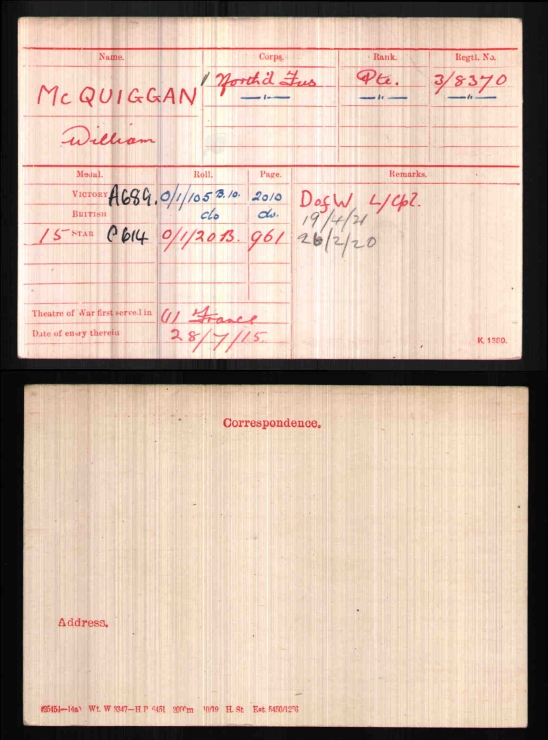 Name. Corps. Rank. Regtl. No.
McQUIGGAN North'd Fus Pte. 3/8370
William —"— —"— —"—
Medal. Roll. Page. Remarks.
VICTORY A689. 0/1/105 B.10. 2010 D of W L/Cpl.
BRITISH do do. 19/4/21
15 STAR C614 0/1/20 B. 961 26/2/20
Theatre of War first served in (1) France
Date of entry therein 28/7/15.
K. 1380.
Correspondence.
Address.